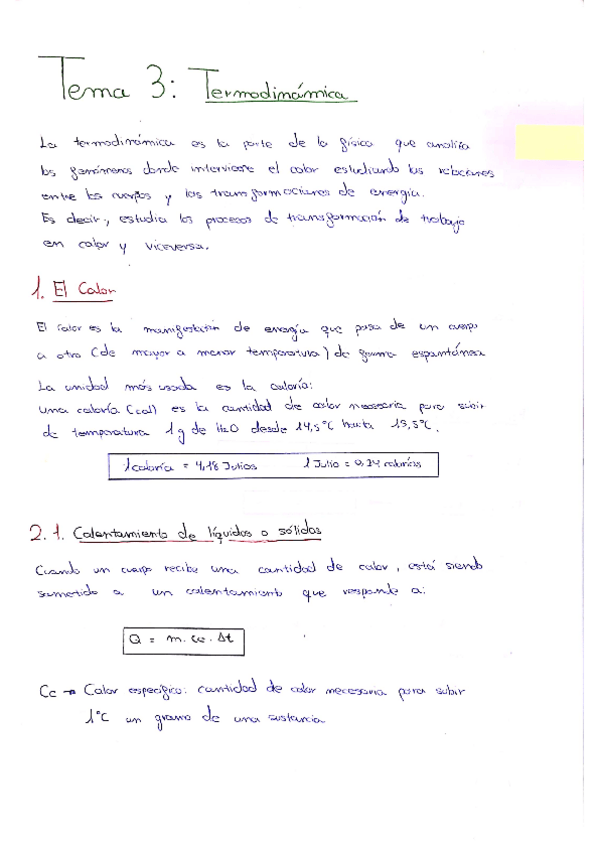 Tema 3: Termodinámica
La termodinámica es la parte de la física que analiza
los fenómenos donde interviene el calor estudiando las relaciones
entre los cuerpos y las transformaciones de energía.
Es decir, estudia los procesos de transformación de trabajo
en calor y viceversa.
1. El Calor
El calor es la manifestación de energía que pasa de un cuerpo
a otro (de mayor a menor temperatura) de forma espontánea
La unidad más usada es la caloría:
una caloría (cal) es la cantidad de calor necesaria para subir
de temperatura 1g de H2O desde 14,5°C hasta 15,5°C.
1 caloría = 4,18 Julios 1 Julio = 0,24 calorías
2.1. Calentamiento de líquidos o sólidos
Cuando un cuerpo recibe una cantidad de calor, está siendo
sometido a un calentamiento que responde a:
Q = m.ce.Δt
Ce → Calor específico: cantidad de calor necesaria para subir
1°C un gramo de una sustancia